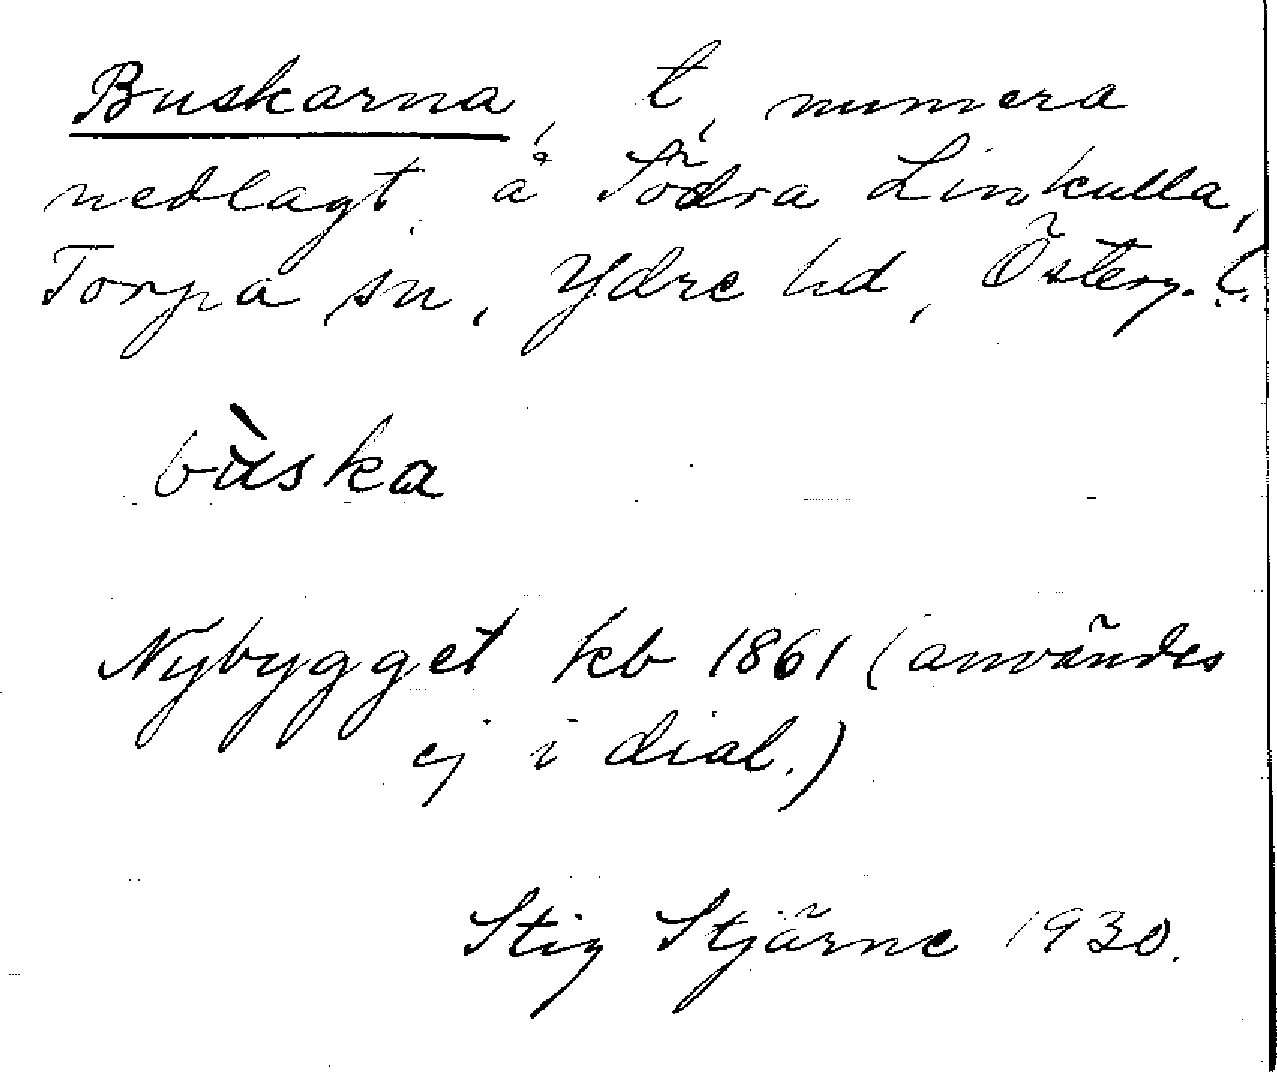 Buskarna, t, numera
nedlagt. å Södra Linkulla,
Torpa sn, Ydre hd, Österg. l.
bùska
Nybygget kb 1861 (användes
ej i dial.)
Stig Stjärne 1930.